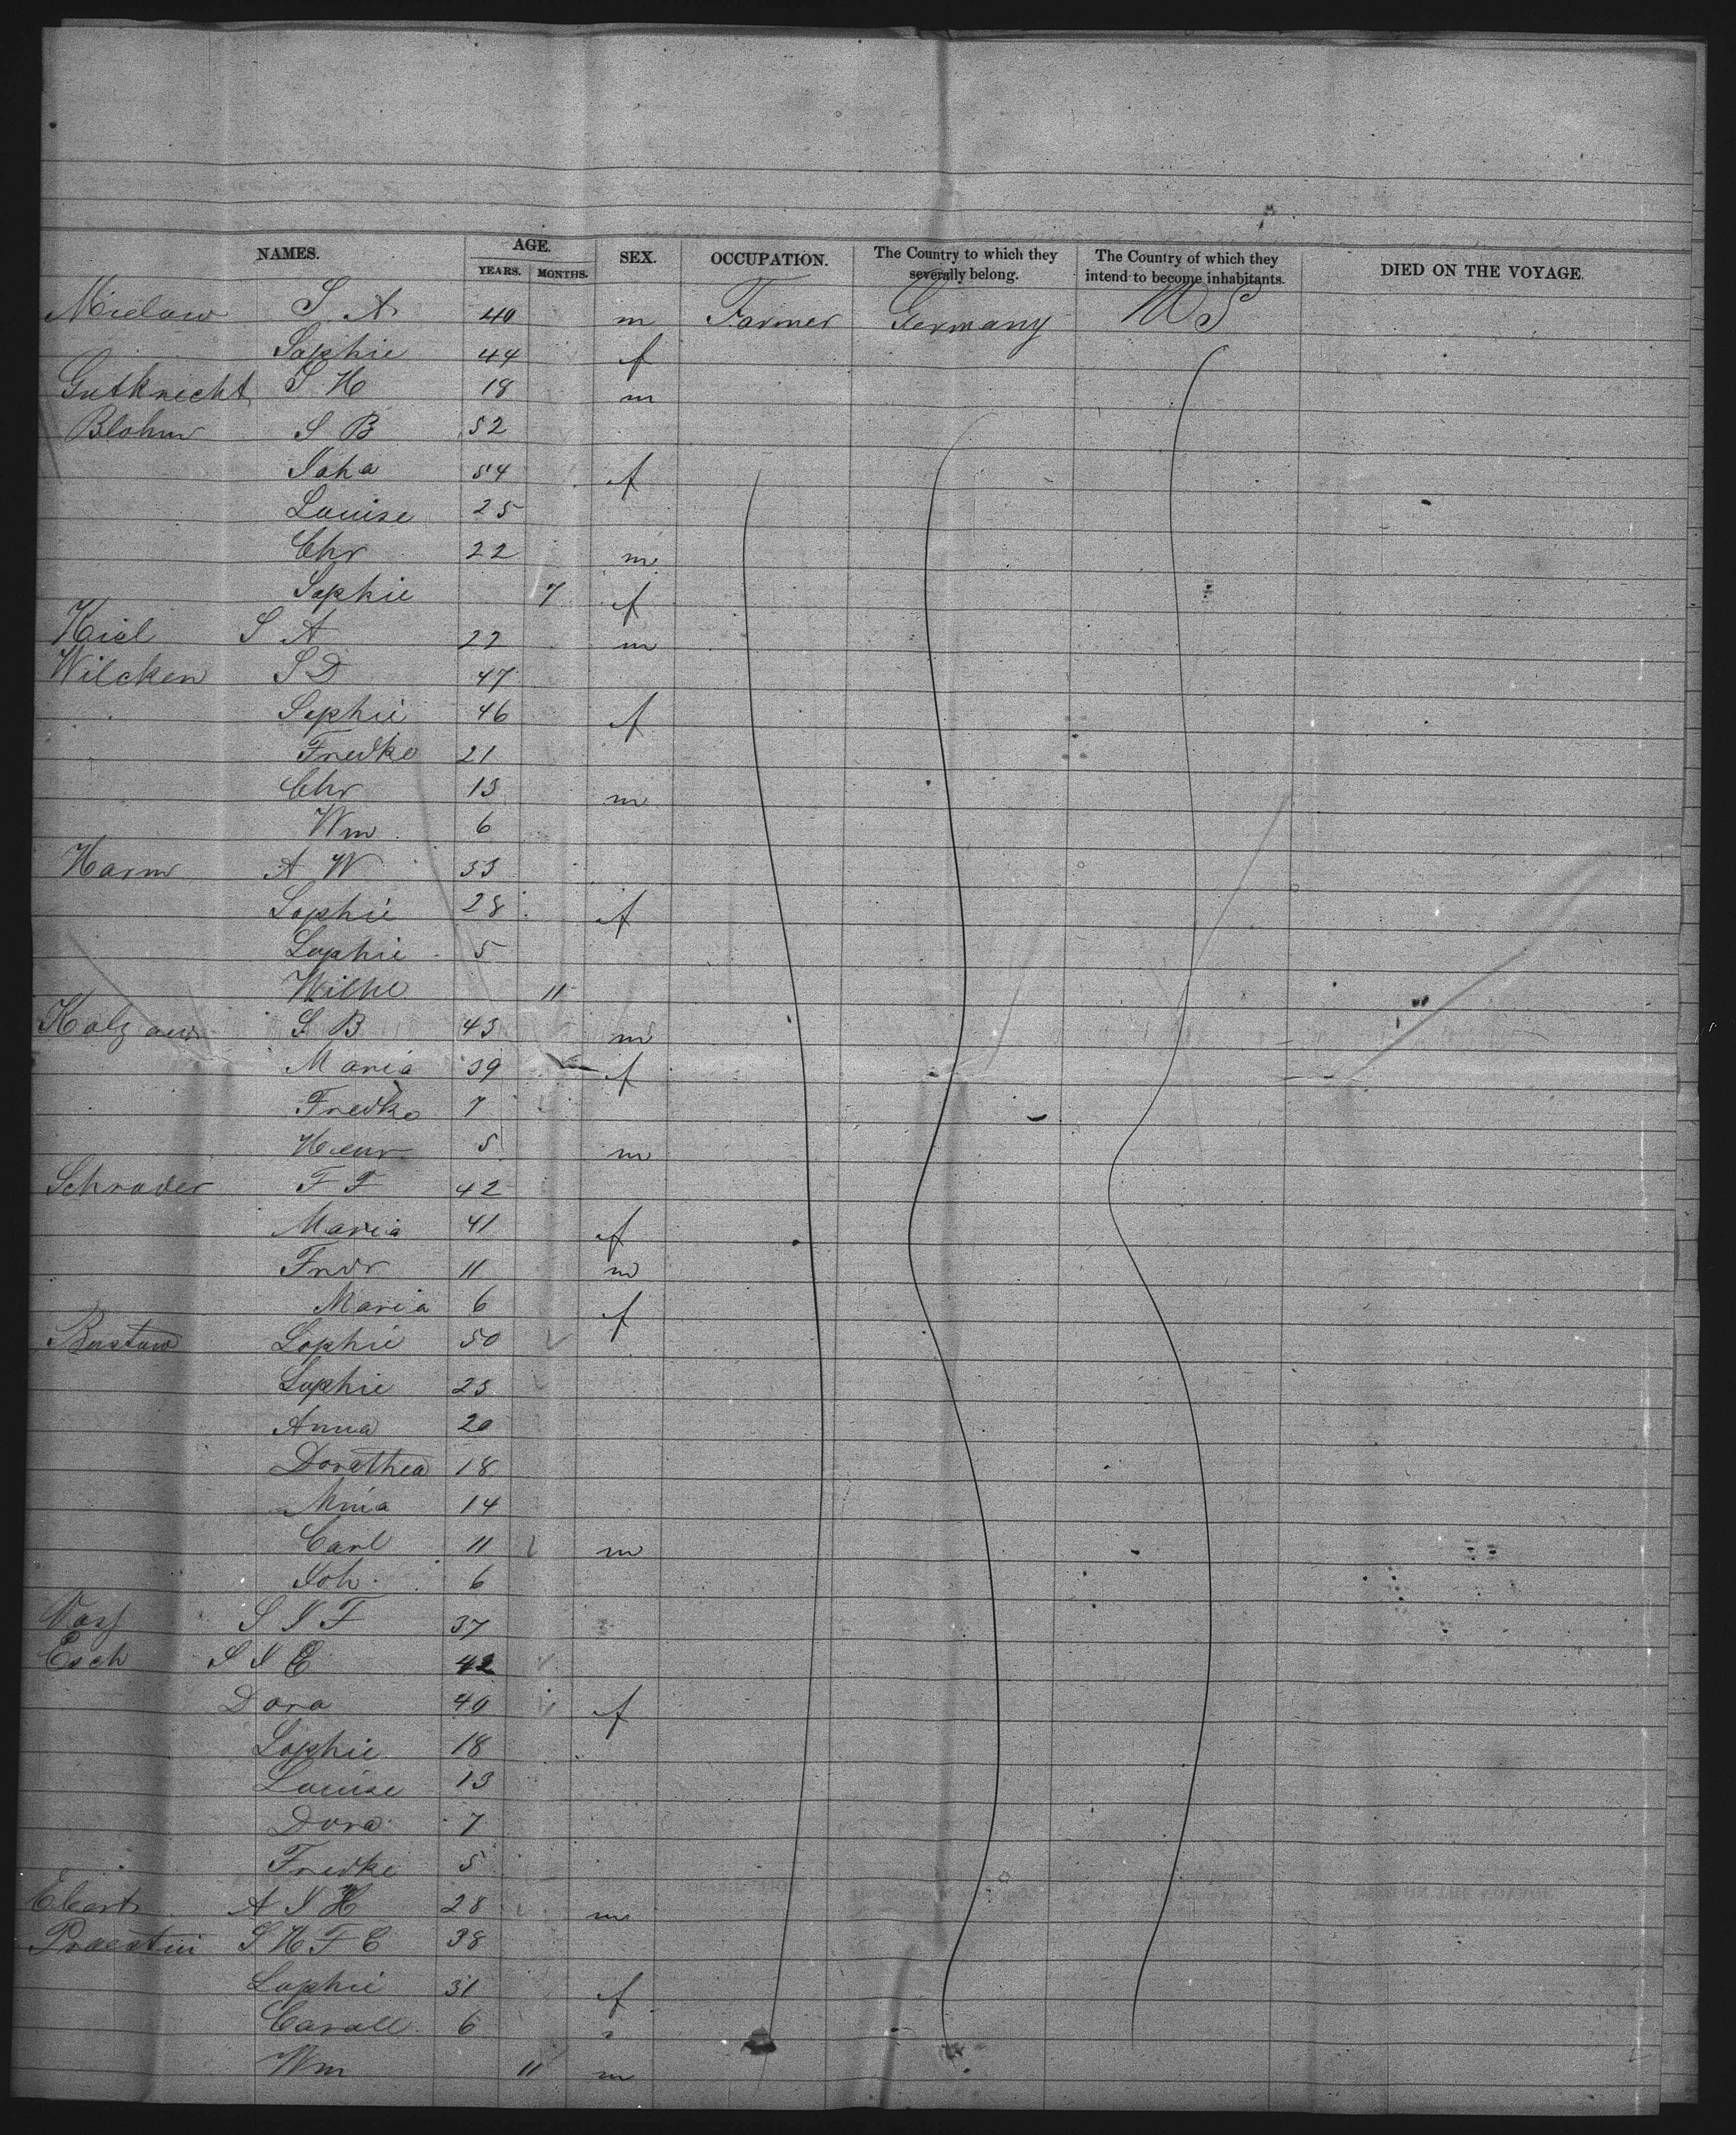 NAMES. AGE. SEX. OCCUPATION. The Country to which they severally belong. The Country of which they intend to become inhabitants. DIED ON THE VOYAGE.
YEARS. MONTHS.
S A 40 m Farmer Germany U S
Sophie 44 f
Gutknecht S H 18 m
Blohm S B 52
54 f
Louise 25
Chr 22 m
Sophie 7 f
Kiel S A 22 m
Wilcken S D 47
Sophie 46 f
Fredke 21
Chr 13 m
Wm 6
Harm A W 33
Sophie 28 f
Sophie 5
Wilhe 11
S B 43 m
Maria 39 f
Fredke 7
Henr 5 m
Schrader F F 42
Maria 41 f
Fredr 11 m
Maria 6 f
Sophie 50
Sophie 23
Anna 20
Dorathea 18
14
Carl 11 m
Joh 6
S J F 37
Esch S J C 42
Dora 40 f
Sophie 18
Louise 13
Dora 7
Fredke 5
Ebert A J H 28 m
S H F C 38
Sophie 31 f
6
Wm 11 m